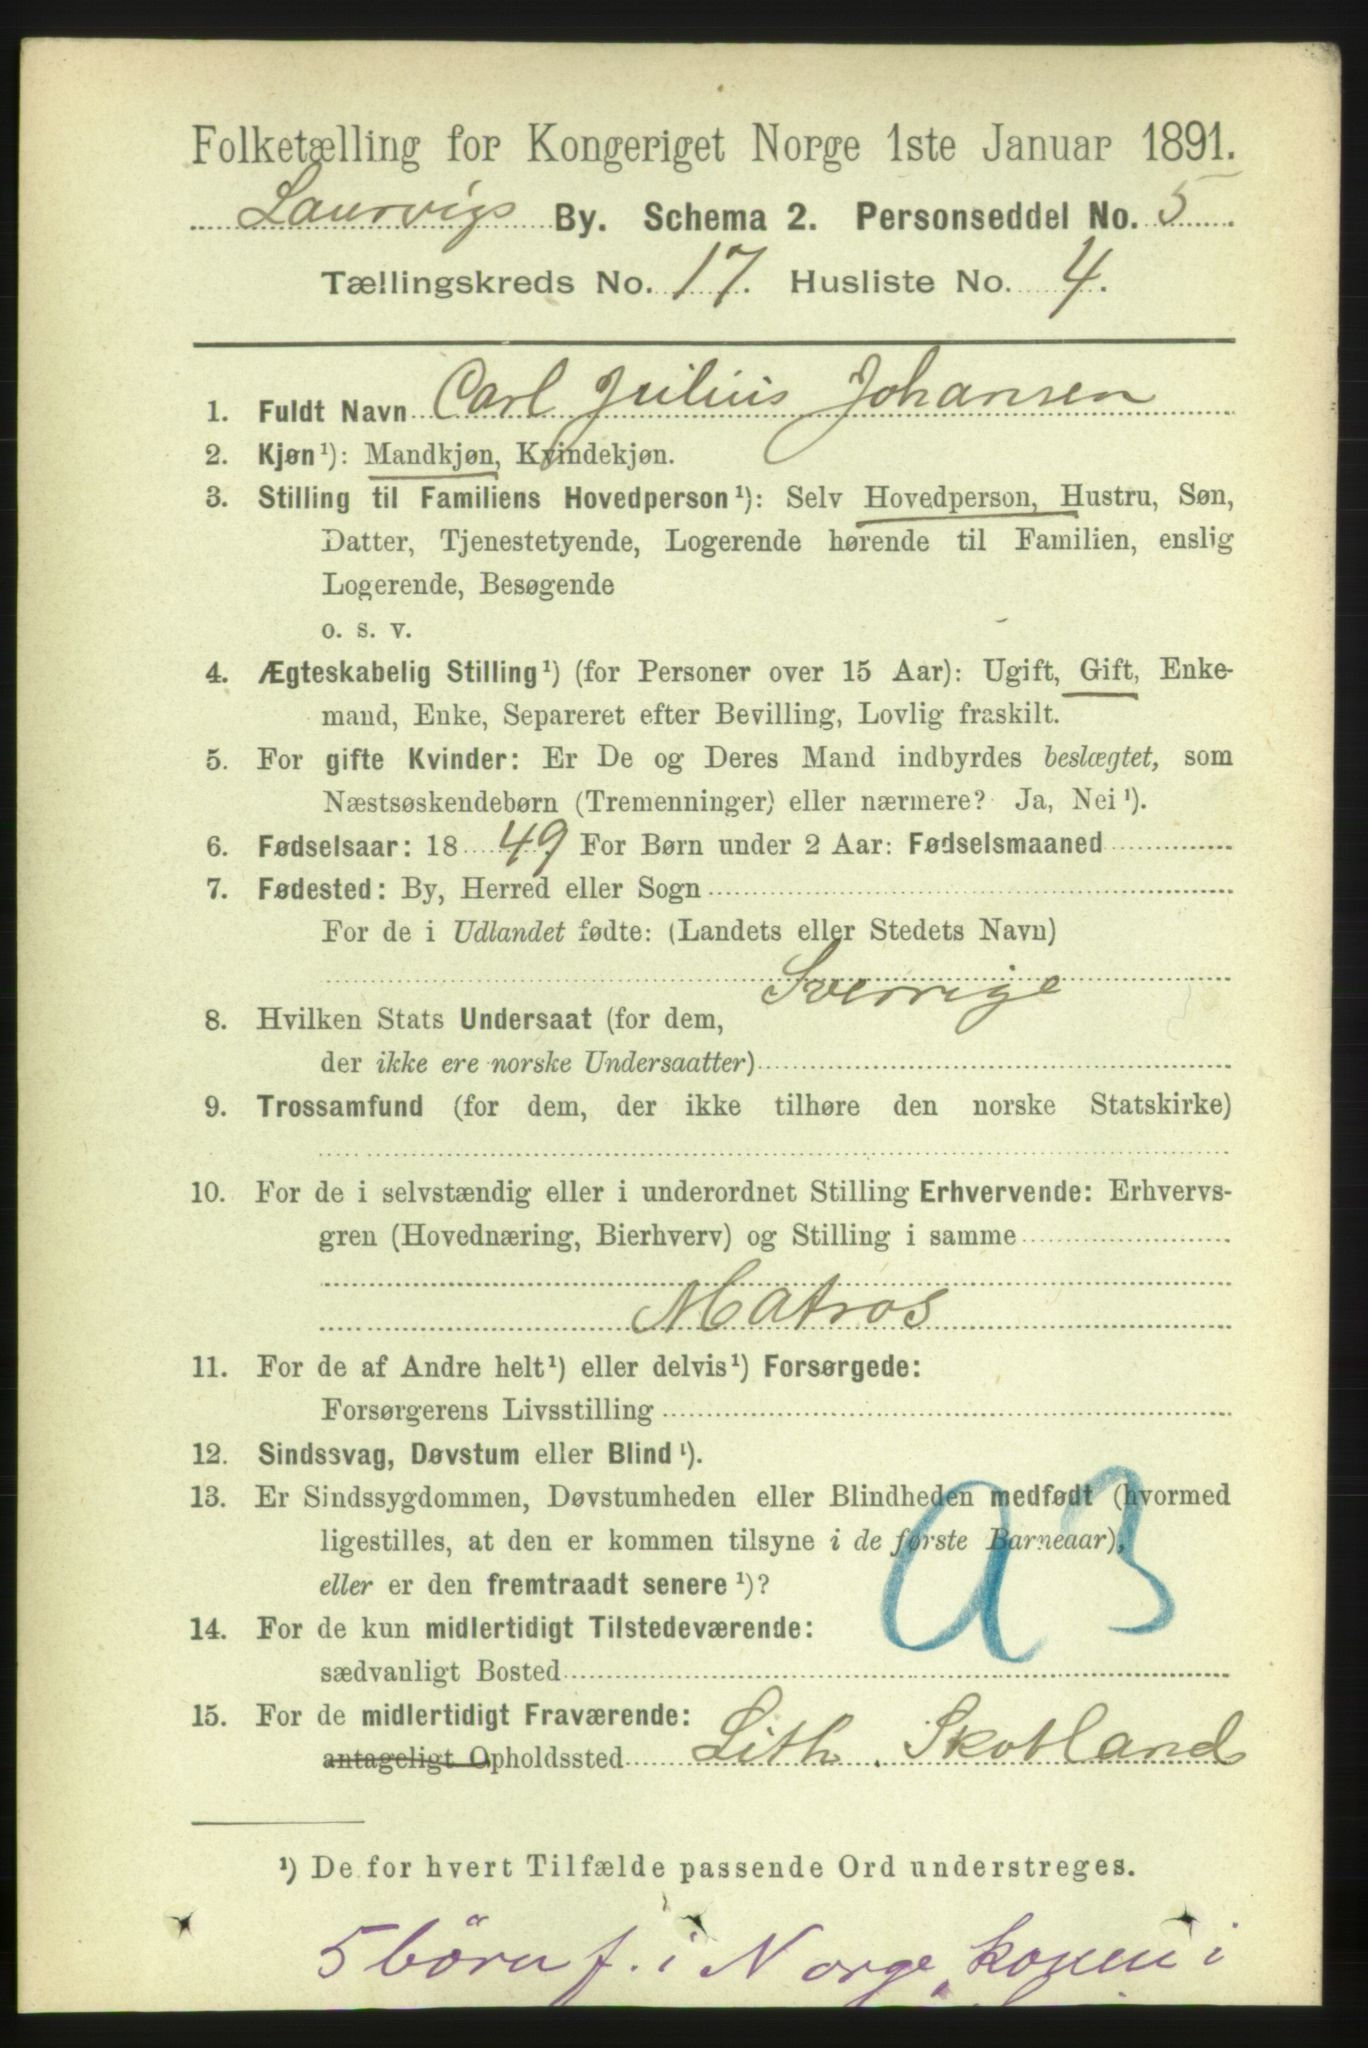 Folketælling for Kongeriget Norge 1ste Januar 1891.
Laurvigs By. Schema 2. Personseddel No. 5
Tællingskreds No. 17. Husliste No. 4.
1. Fuldt Navn Carl Julius Johansen
2. Kjøn¹): Mandkjøn, Kvindekjøn.
3. Stilling til Familiens Hovedperson¹): Selv Hovedperson, Hustru, Søn,
Datter, Tjenestetyende, Logerende hørende til Familien, enslig
Logerende, Besøgende
o. s. v.
4. Ægteskabelig Stilling¹) (for Personer over 15 Aar): Ugift, Gift, Enke-
mand, Enke, Separeret efter Bevilling, Lovlig fraskilt.
5. For gifte Kvinder: Er De og Deres Mand indbyrdes beslægtet, som
Næstsøskendebørn (Tremenninger) eller nærmere? Ja, Nei¹).
6. Fødselsaar: 1849 For Børn under 2 Aar: Fødselsmaaned
7. Fødested: By, Herred eller Sogn
For de i Udlandet fødte: (Landets eller Stedets Navn)
Sverrige
8. Hvilken Stats Undersaat (for dem,
der ikke ere norske Undersaatter)
9. Trossamfund (for dem, der ikke tilhøre den norske Statskirke)
10. For de i selvstændig eller i underordnet Stilling Erhvervende: Erhvervs-
gren (Hovednæring, Bierhverv) og Stilling i samme
Matros
11. For de af Andre helt¹) eller delvis¹) Forsørgede:
Forsørgerens Livsstilling
12. Sindssvag, Døvstum eller Blind¹).
13. Er Sindssygdommen, Døvstumheden eller Blindheden medfødt (hvormed
ligestilles, at den er kommen tilsyne i de første Barneaar),
eller er den fremtraadt senere¹)?
a3
14. For de kun midlertidigt Tilstedeværende:
sædvanligt Bosted
15. For de midlertidigt Fraværende:
antageligt Opholdssted Lith. Skotland
¹) De for hvert Tilfælde passende Ord understreges.
5 börn f. i Norge, konen i